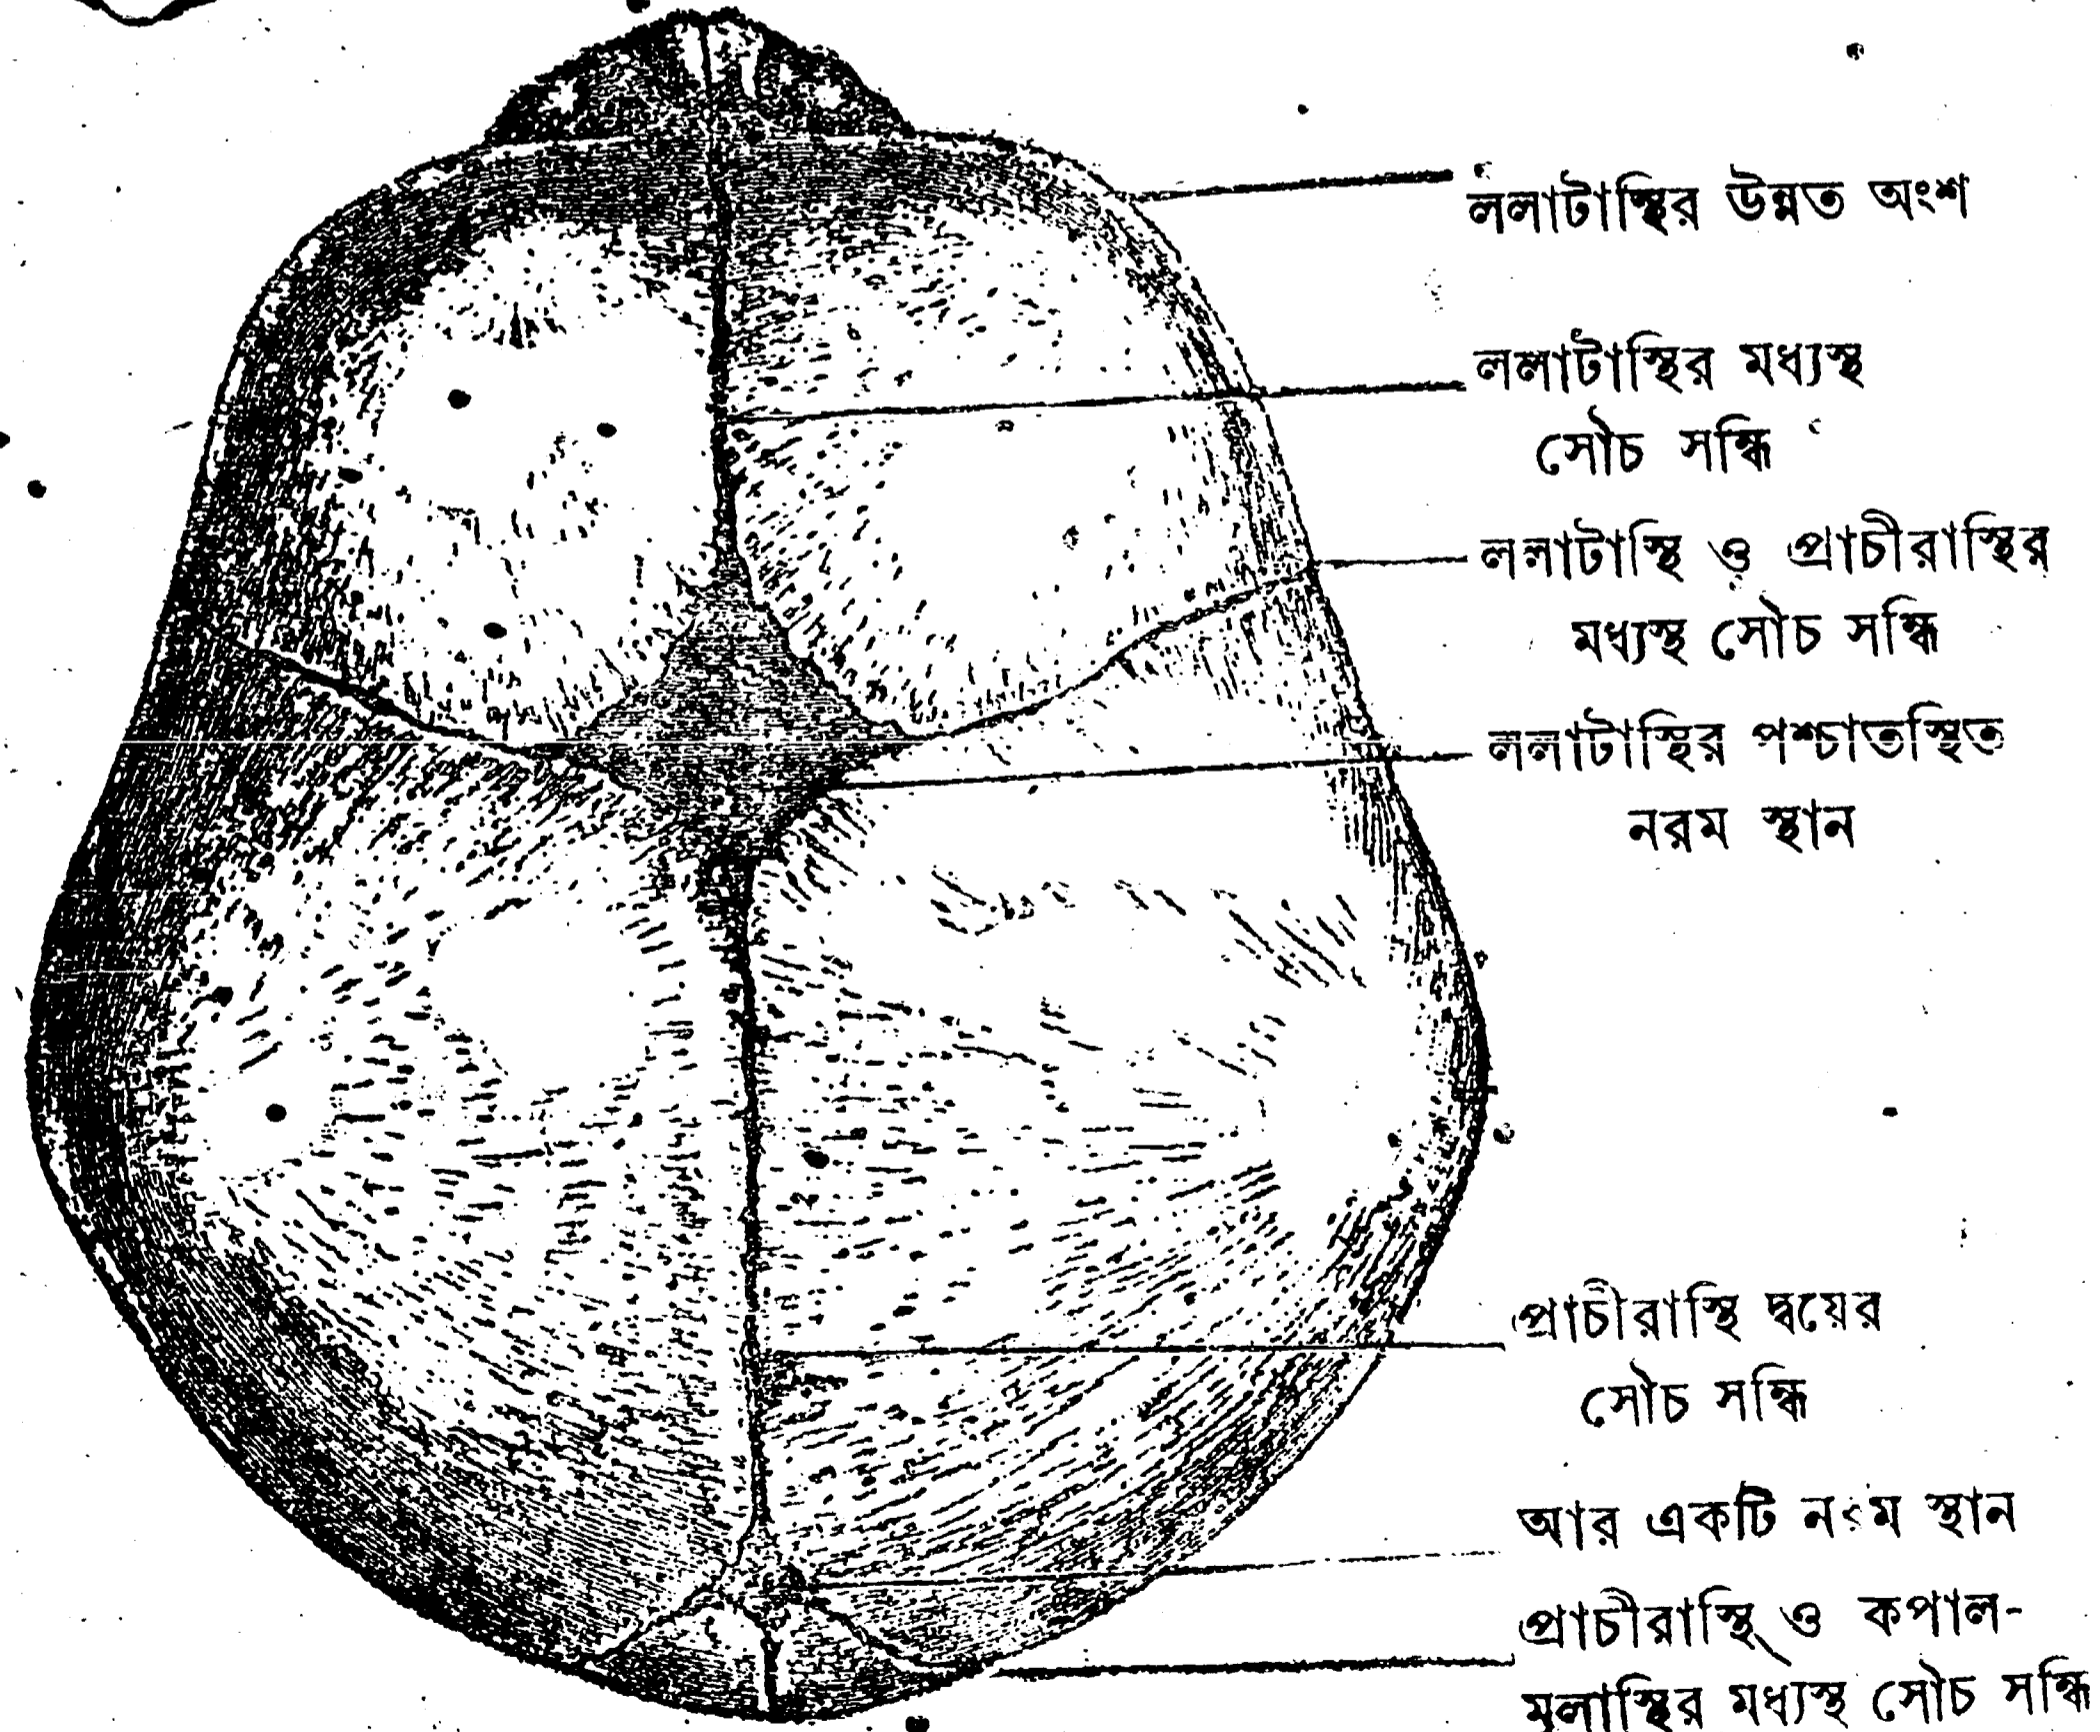 ললাটাস্থির উন্নত অংশ
ললাটাস্থির মধ্যস্থ
সৌচ সন্ধি
ললাটাস্থি ও প্রাচীরাস্থির
মধ্যস্থ সৌচ সন্ধি
ললাটাস্থির পশ্চাতস্থিত
নরম স্থান
প্রাচীরাস্থি দ্বয়ের
সৌচ সন্ধি
আর একটি নরম স্থান
প্রাচীরাস্থি ও কপাল-
মূলাস্থির মধ্যস্থ সৌচ সন্ধি